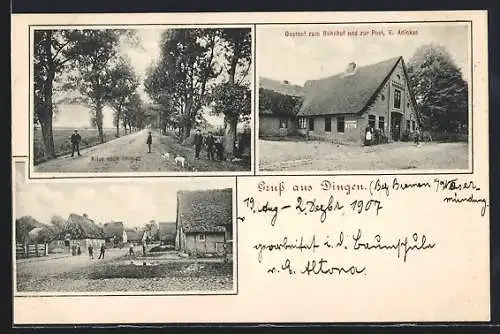 Gasthof zum Bahnhof und zur Post, E. Adickes
Allee nach
Gruß aus Dingen. (Bez Bremen
19 Aug - 2 Dezbr 1907
mündung)
gearbeitet i. d. Baumschule
v. E. Altona.